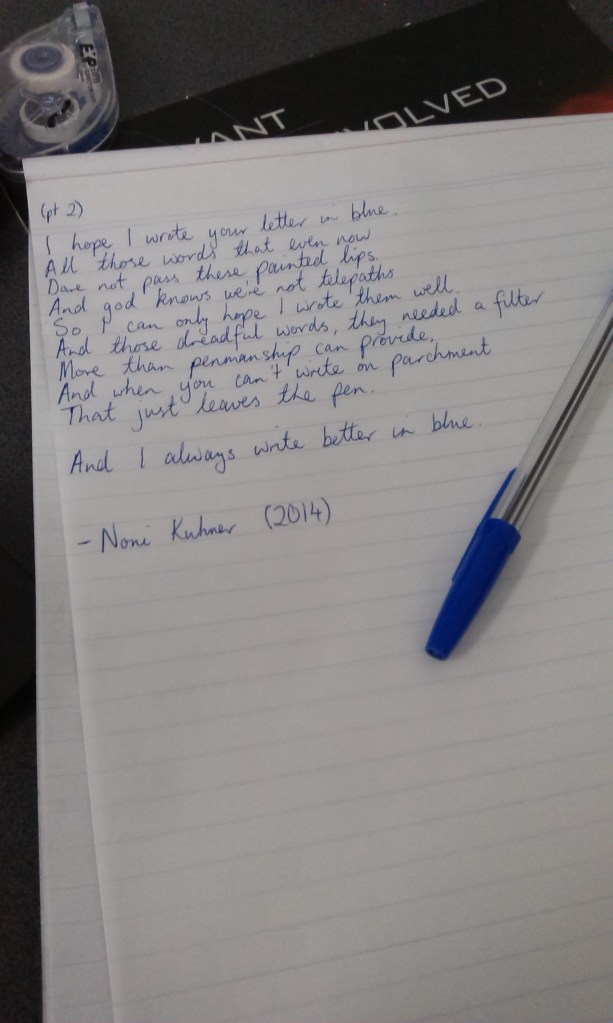 E.P
ANT
VOLVED
(pt 2)
I hope I wrote your letter in blue.
All those words that even now
Dare not pass these painted lips.
And god knows we're not telepaths
So I can only hope I wrote them well.
And those dreadful words, they needed a filter
More than penmanship can provide.
And when you can't write on parchment
That just leaves the pen.
And I always write better in blue.
- Noni Kuhner (2014)